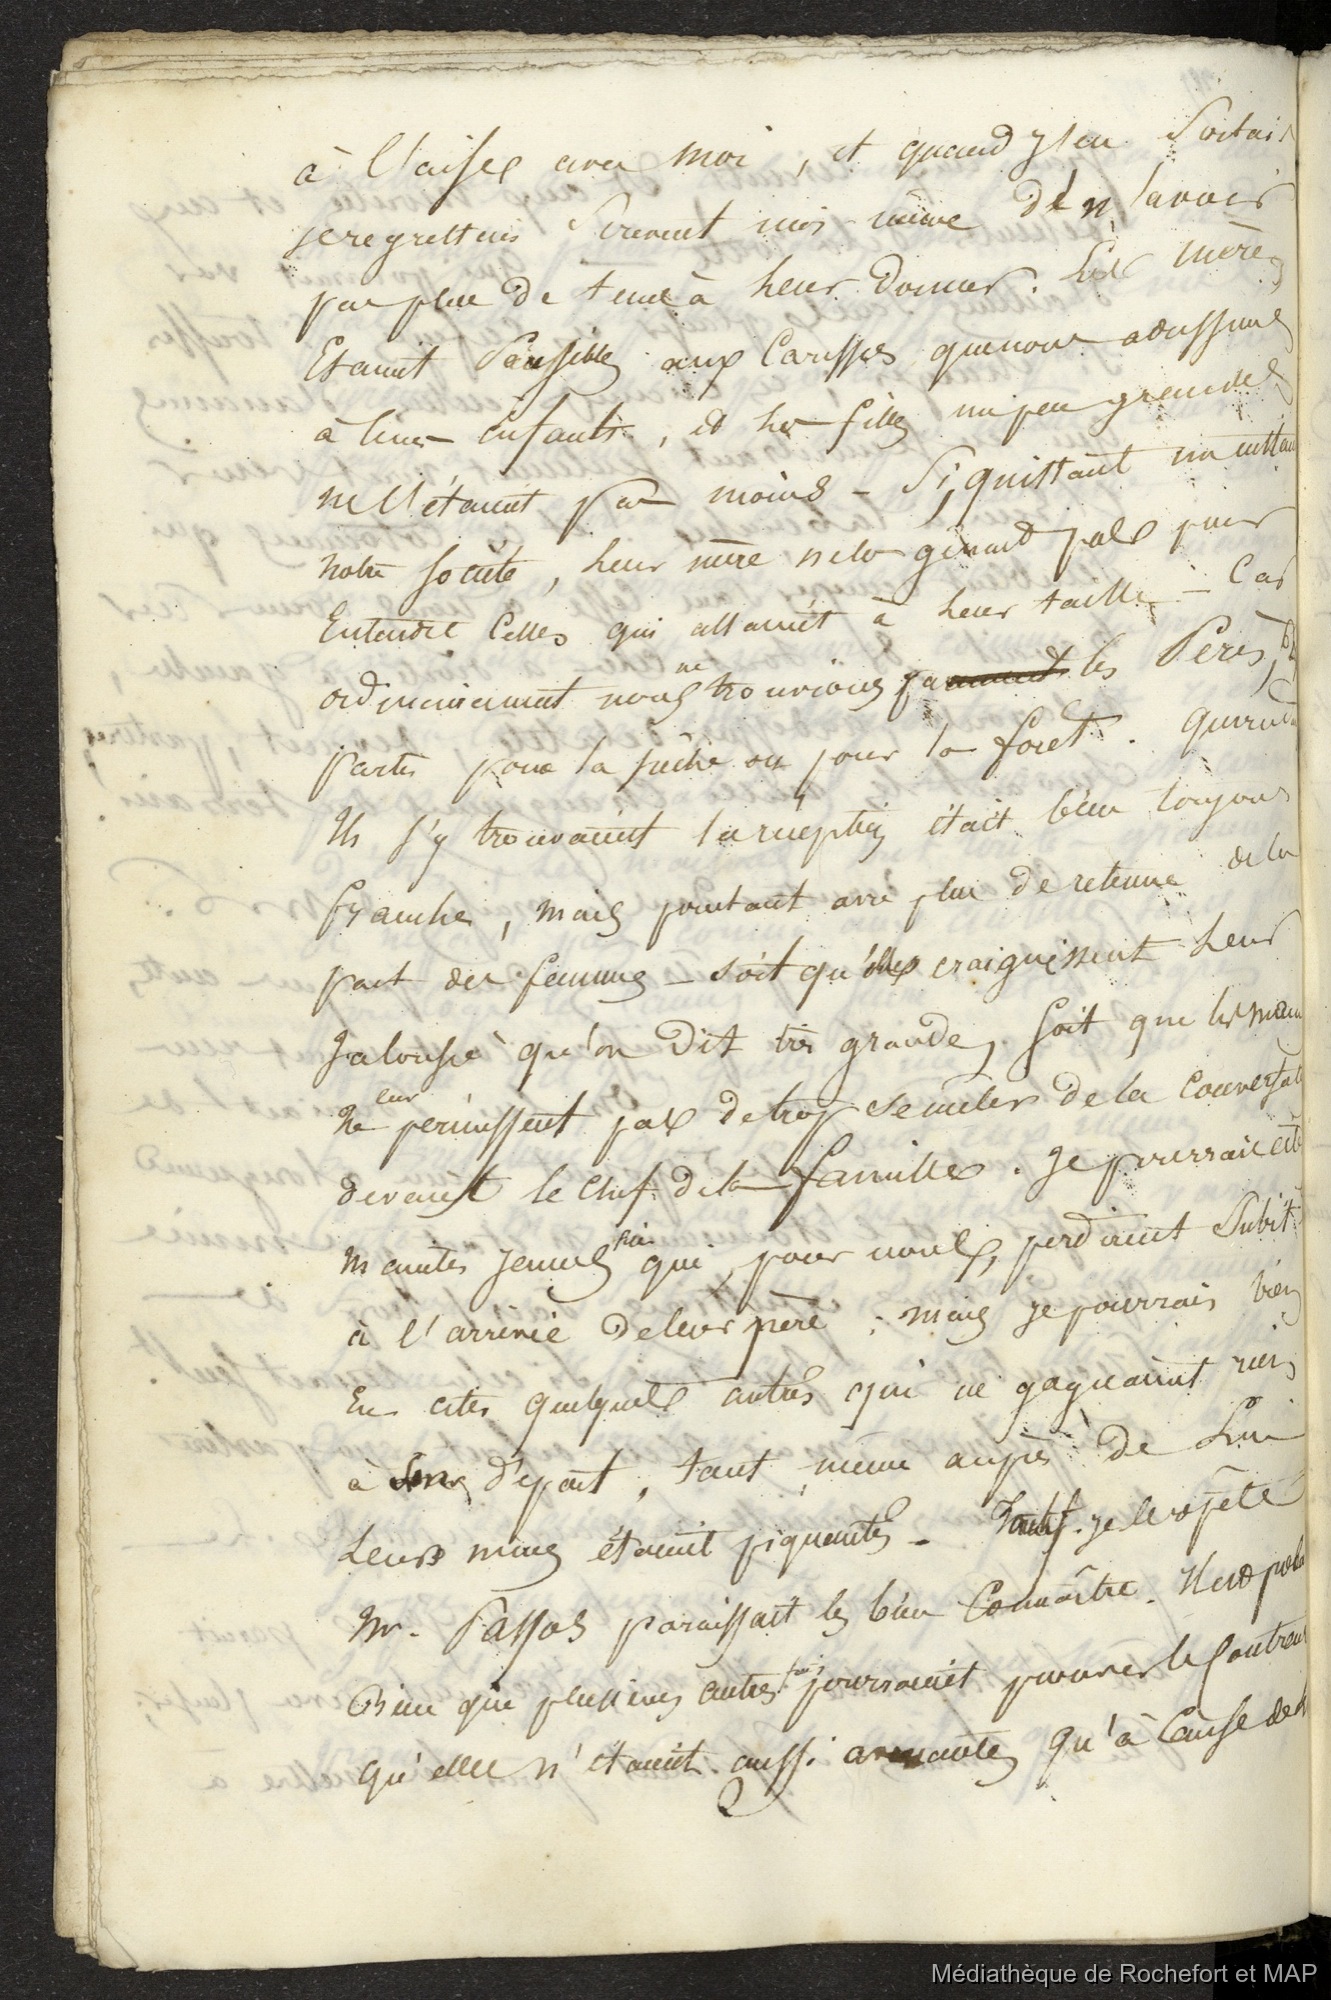 à l'aise avec moi, et quand j'en sortais
je regrettais souvent moi même de n'avoir
pas plus de tems à leur donner. Les mères
Etaient sensibles aux Caresses que nous adressions
à leurs enfants, et les filles un peu grandes
ne l'étaient pas moins – Si, quittant un instant
notre société, leur mère ne les gênait pas pour
Entendre Celles qui allaient à leur taille – Car
ordinairement nous ne trouvions pas les Pères,
partis pour la pêche ou pour la forêt. quand
Ils s'y trouvaient la réception était bien toujours
franche, mais pourtant avec plus de retenue de la
part des femmes – soit qu'elles craignissent leur
Jalousie qu'on Dit très grande, soit que les mœurs
Ne leur permissent pas de trop se mêler de la Conversat
devant le chef de la famille. Je pourrais citer
maintes jeunes qui, pour nous, perdirent Subit
à l'arrivée de leur père ; mais je pourrais bien
En citer quelques autres qui ne gagnaient rien
à son départ, tant, même auprès de Lui
Leurs mines étaient piquantes – je le répète
Mr. Passos paraissait les bien Connaître.
Bien que plusieurs autres pourraient prouver le Contraire
qu'elles n'étaient aussi avenantes qu'à Cause de
Médiathèque de Rochefort et MAP